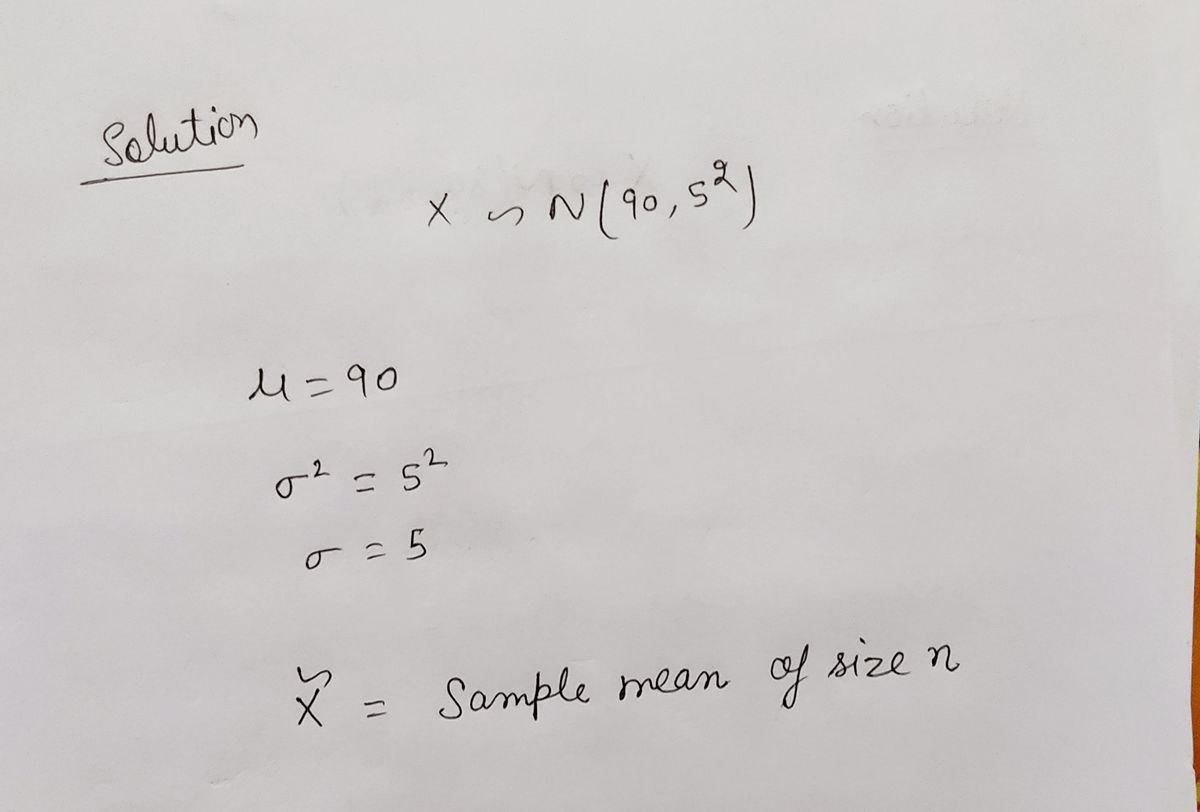 Solution
X ~ N(90, 5²)
μ = 90
σ² = 5²
σ = 5
X̃ = Sample mean of size n